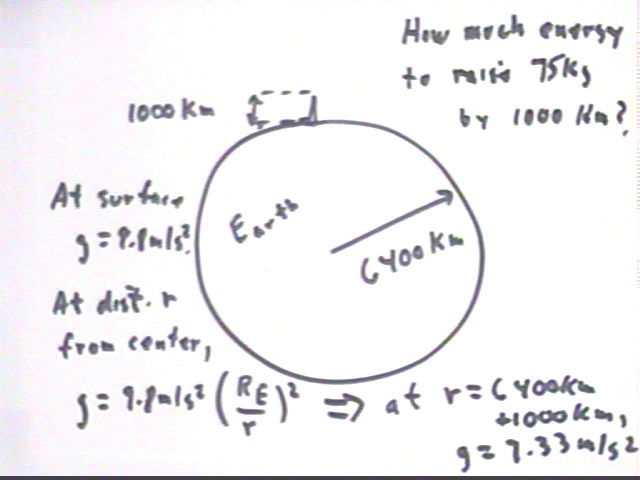 How much energy
to raise 75Kg
by 1000 Km?
1000 Km
At surface
g = 9.8 m/s².
Earth
6400 Km
At dist. r
from center,
g = 9.8 m/s² (R_E/r)² ⇒ at r = 6400 Km
+1000 Km,
g = 7.33 m/s²